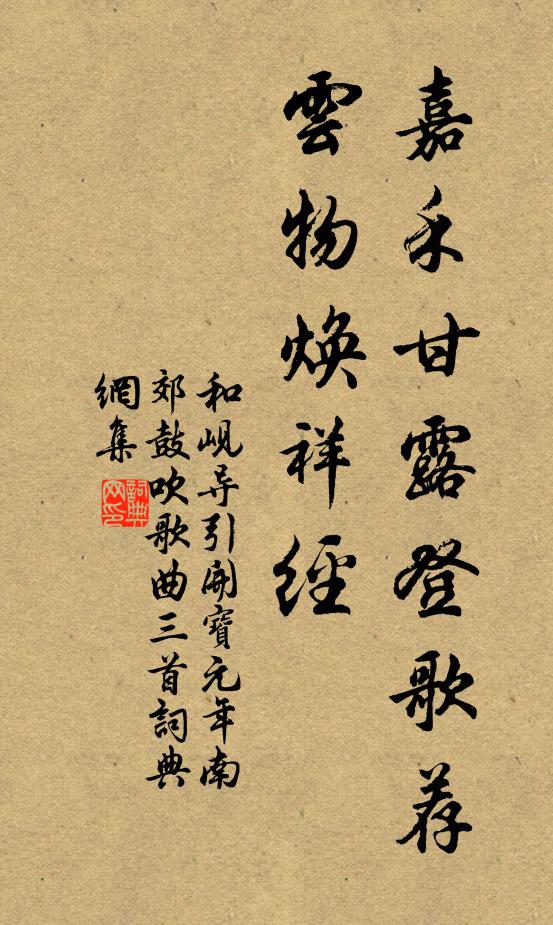 嘉禾甘露登歌荐
雲物焕祥經
和峴导引開寶元年南
郊鼓吹歌曲三首詞典
網集
詞典网印